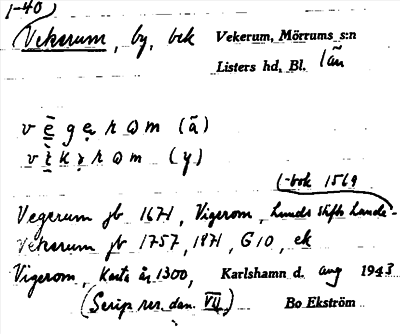 1-40
Vekerum, by, bek Vekerum, Mörrums s:n
Listers hd, Bl. län
v ē g e r ω m (ä)
v ī k r ω m (y)
(-bok 1569
Vegerum jb 1671, Vigerom, Lunds stifts Lande-
Vekerum jb 1757, 1871, G10, ek
Vigerom, Karta år 1300, Karlshamn d. aug 1943
(Scrip rer. dan. VII) Bo Ekström